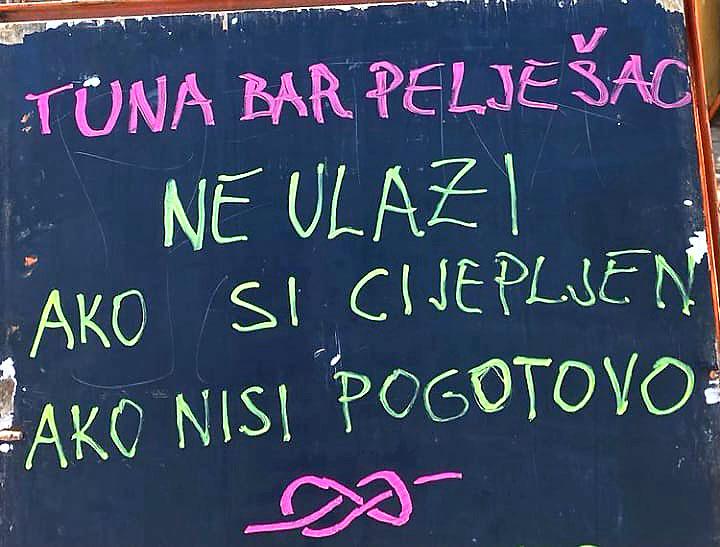 TUNA BAR PELJEŠAC
NE ULAZI
AKO SI CIJEPLJEN
AKO NISI POGOTOVO